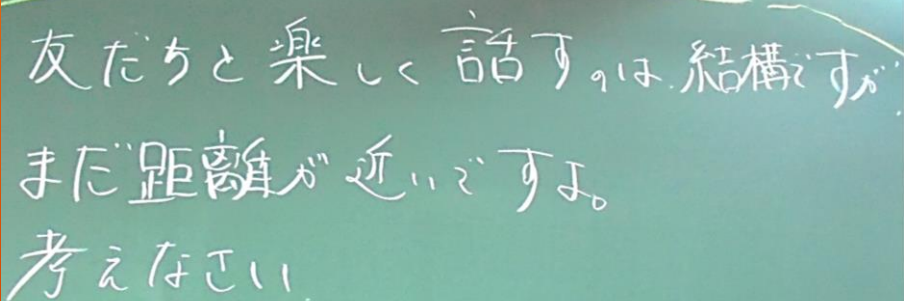 友だちと楽しく話すのは結構ですが
まだ距離が近いですよ。
考えなさい